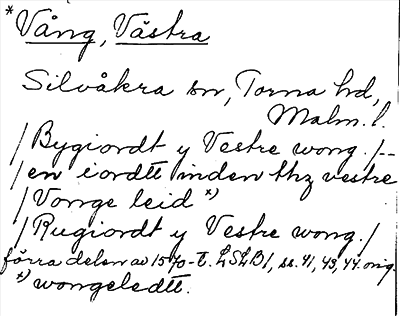 * Vång, Västra
Silvåkra sn, Torna hd,
Malm. l.
/Bygiordt y Vestre wong./--
/en iordtt inden thz vestre
/Vonge leid *)
/Rugiordt y Vestre wong./
förra delen av 1570-t. LSLB1, ss. 41, 43, 44. orig.
*) wongeledtt.